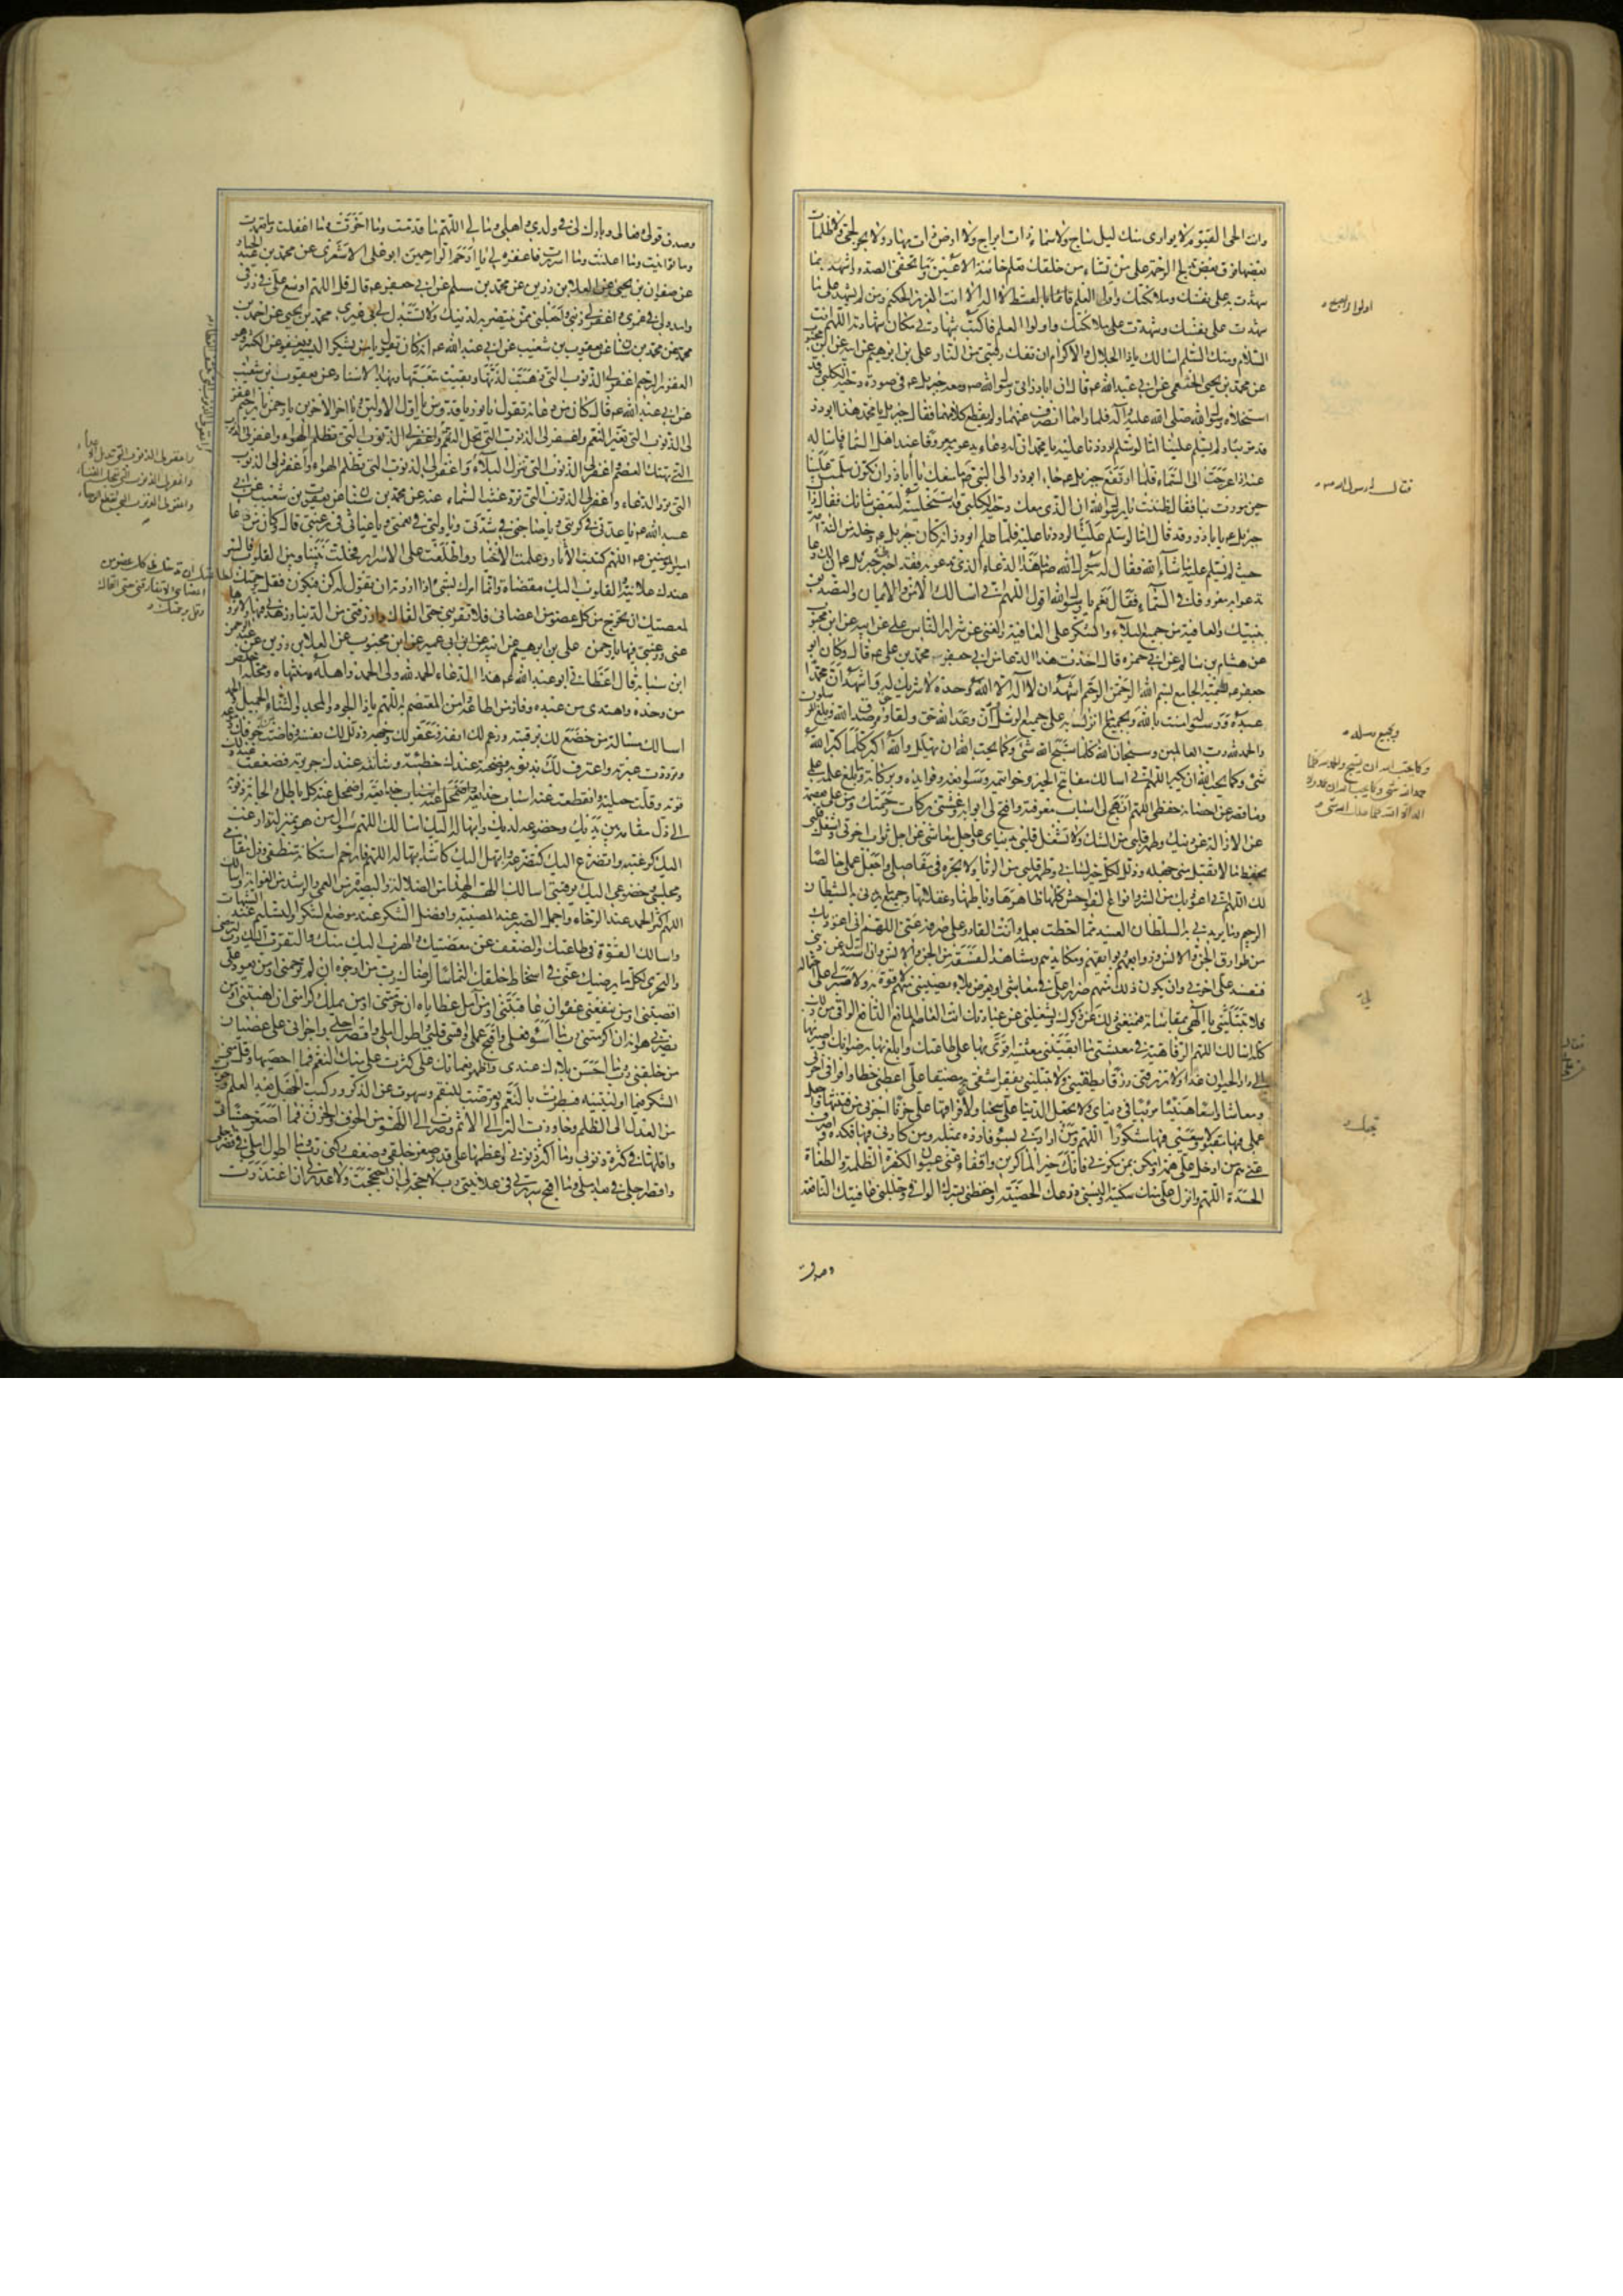 وانت الحي القيوم لا يوارى منك ليل ساج ولا سماء ذات ابراج ولا ارض ذات مهاد ولا بحر لجي ولا ظلمات
بعضها فوق بعض تدلج الرحمة على من تشاء من خلقك تعلم خائنة الاعين وما تخفي الصدور اشهد بما
شهدت به على نفسك وملائكتك واولي العلم قائما بالقسط لا اله الا انت العزيز الحكيم ومن لم يشهد على ما
شهدت على نفسك وشهدت على ملائكتك واولوا العلم فاكتب شهادتي مكان شهادته اللهم انت
السلام ومنك السلم اسالك ياذا الجلال والاكرام ان تفك رقبتي من النار على بن ابرهيم عن ابيه عن ابن محبوب
عن محمد بن يحيى الخثعمي عن ابي عبد الله عم قال ان اباذر اتى رسول الله صم ومعه جبريل عم في صورة دحية الكلبي وقد
استخلاه رسول الله صلى الله عليه وآله فلما راهما انصرف عنهما ولم يقطع كلامهما فقال جبريل يا محمد هذا ابوذر
قد مر بنا ولم يسلم علينا اما لو سلم لرددنا عليه يا محمد ان له دعاء يدعو به معروفا عند اهل السماء فاساله
عنه اذا عرجت الى السماء فلما ارتفع جبريل عم جاء ابوذر الى النبي صم ما منعك يا اباذر ان تكون سلمت علينا
حين مررت بنا فقال ظننت يا رسول الله ان الذي معك دحية الكلبي قد استخليته لبعض شانك فقال ذاك
جبريل عم يا باذر وقد قال اما لو سلم علينا لرددنا عليه فلما علم ابوذر انه كان جبريل عم دخله من الندامة
حيث لم يسلم عليه ما شاء الله فقال له رسول الله ما هذا الدعاء الذي تدعو به فقد اخبرني جبريل عم ان لك دعا
تدعوا به معروفك في السماء فقال نعم يا رسول الله اقول اللهم اني اسالك الامن والايمان والتصديق
بنبيك والعافية من جميع البلاء والشكر على العافية والغنى عن شرار الناس على عن ابيه عن ابن محبوب
عن هشام بن سالم عن ابي حمزه قال اخذت هذا الدعا من ابي جعفر محمد بن على عم قال وكان ابو
جعفر عم يسميه الجامع بسم الله الرحمن الرحيم اشهد ان لا اله الا الله وحده لا شريك له واشهد ان محمدا
عبده ورسوله امنت بالله وبجميع ما انزل به على جميع الرسل وان وعد الله حق ولقاؤه حق وصدق الله وبلغ المرسلون
والحمد لله رب العالمين وسبحان الله كلما سبح الله شئ وكما يحب الله ان يهلل والله اكبر كلما كبر الله
شئ وكما يحب الله ان يكبر اللهم اني اسالك مفاتيح الخير وخواتيمه وسوابغه وفوايده وبركاته وما بلغ علمه علمي
وما قصر عن احصائه حفظي اللهم انهج لى اسباب معرفته وافتح لى ابوابه وغشني بركات رحمتك ومن على بعصمة
عن الازالة عن دينك وطهر قلبي من الشك ولا تشغل قلبي بدنياي وعاجل معاشي عن اجل ثواب اخرتي واشغل قلبي
بحفظ ما لا تقبل مني جهله وذلل لكل خير لساني وطهر قلبي من الرياء ولا تجره في مفاصلي واجعل عملي خالصا
لك اللهم اني اعوذ بك من الشر وانواع الفواحش كلها ظاهرها وباطنها وغفلاتها وجميع ما يريدني به الشيطان
الرجيم وما يريدني به السلطان العنيد مما احطت بعلمه وانت القادر على صرفه عني اللهم اني اعوذ بك
من طوارق الجن والانس وزوابعهم وبوائقهم ومكايدهم ومشاهد الفسقة من الجن والانس وان استزل عن ديني
فتفسد على اخرتي وان يكون ذلك منهم ضررا على في معاشي او يعرض بلاء يصيبني منهم لا قوة لي به ولا صبر لي على احتماله
فلا تبتليني يا الهي بمقاساته فيمنعني ذلك عن ذكرك ويشغلني عن عبادتك انت العاصم المانع الدافع الواقي من ذلك
كله اسالك اللهم الرفاهية في معيشتي ما ابقيتني معيشة اقوى بها على طاعتك وابلغ بها رضوانك واصير بها
الى دار الحيوان غدا ولا ترزقني رزقا يطغيني ولا تبتلني بفقر اشقى به مضيقا على اعطني حظا وافرا في اخرتي
ومعاشا واسعا هنيئا مريئا في دنياي ولا تجعل الدنيا على سجنا ولا فراقها على حزنا اجرني من فتنتها واجعل
عملي فيها مقبولا وسعيي فيها مشكورا اللهم ومن ارادني بسوء فارده بمثله ومن كادني فيها فكده واصرف
عني هم من ادخل على همه وامكر بمن مكر بي فانك خير الماكرين وافقأ عني عيون الكفرة الظلمة والطغاة
الحسدة اللهم وانزل على منك سكينة والبسني درعك الحصينة واحفظني بسترك الواقي وجللني عافيتك النافعة
وصدق
اولوا العلم
فقال يا رسول الله
وبجميع رسله
وكما يحب الله ان يسبح والحمد لله كلما
حمد الله شئ وكما يحب الله ان يحمد ولا
اله الا الله كلما هلل الله شئ
وصدق قولي وفعالي وبارك لى في ولدي واهلي ومالي اللهم ما قدمت وما اخرت وما اغفلت وما تعمدت
وما توانيت وما اعلنت وما اسررت فاغفره لي يا ارحم الراحمين ابو على الاشعري عن محمد بن عبد الجبار
عن صفوان بن يحيى عن العلا بن رزين عن محمد بن مسلم عن ابي جعفر عم قال قل اللهم اوسع على في رزقي
وامدد لى في عمري واغفر لى ذنبي واجعلني ممن تنتصر به لدينك ولا تستبدل بي غيري محمد بن يحيى عن احمد بن
محمد عن محمد بن سنان عن يعقوب بن شعيب عن ابي عبد الله عم انه كان يقول يا من يشكر اليسير ويعفو عن الكثير وهو
الغفور الرحيم اغفر لى الذنوب التي ذهبت لذتها وبقيت تبعتها وبهذا الاسناد عن يعقوب بن شعيب
عن ابي عبد الله عم قال كان من دعائه يقول يا نور يا قدوس يا اول الاولين ويا اخر الاخرين يا رحمن يا رحيم اغفر
لى الذنوب التي تغير النعم واغفر لى الذنوب التي تحل النقم واغفر لى الذنوب التي تظلم الهواء واغفر لى الذنوب
التي تهتك العصم واغفر لى الذنوب التي تنزل البلاء واغفر لى الذنوب التي تظلم الهواء واغفر لى الذنوب
التي ترد الدعاء واغفر لى الذنوب التي ترد غيث السماء عنه عن محمد بن سنان عن يعقوب بن شعيب عن ابي
عبد الله عم يا عدتي في كربتي ويا صاحبي في شدتي ويا وليي في نعمتي ويا غياثي في رغبتي قال كان من دعا
امير المومنين عم اللهم كتبت الاثار وعلمت الاخبار واطلعت على الاسرار فحلت بيننا وبين القلوب فالسر
عندك علانية والقلوب اليك مفضاة وانما امرك لشئ اذا اردته ان تقول له كن فيكون فقل برحمتك لطاعتك
لمعصيتك ان تخرج من كل عضو من اعضائي فلا تقربني حتى القاك وارزقني من الدنيا وزهدني فيها ولا تزوها
عني ورغبتي فيها يا رحمن على بن ابراهيم عن ابيه عن ابن ابي عمير عن ابن محبوب عن العلا بن رزين عن عبد الرحمن
ابن سيابه قال اعطاني ابو عبد الله عم هذا الدعاء الحمد لله ولى الحمد واهله ومنتهاه ومحله اخلص
من وحده واهتدى من عبده وفاز من اطاعه وامن المعتصم به اللهم ياذا الجود والمجد والثناء الجميل والحمد
اسالك مسالة من خضع لك برقبته ورغم لك انفه وعفر لك وجهه وذلل لك نفسه وفاضت من خوفك دموعه
وترددت عبرته واعترف لك بذنوبه وفضحته عندك خطيئته وشانته عندك جريرته فضعفت عند ذلك
قوته وقلت حيلته وانقطعت عنه اسباب خدائعه واضمحل عنه كل باطل والجاته ذنوبه
الى ذل مقامه بين يديك وخضوعه لديك وابتهاله اليك اسالك اللهم سؤال من هو بمنزلته ارغب
اليك كرغبته واتضرع اليك كتضرعه وابتهل اليك كاشد ابتهاله اللهم فارحم استكانة منطقي وذل مقامي
ومجلسي وخضوعي اليك برقبتي اسالك اللهم الهدى من الضلالة والبصيرة من العمى والرشد من الغواية واسالك
اللهم اكثر الحمد عند الرخاء واجمل الصبر عند المصيبة وافضل الشكر عند موضع الشكر والتسليم عند الشبهات
واسالك القوة في طاعتك والضعف عن معصيتك والهرب اليك منك والتقرب اليك رب لترضى
والتحري لكل ما يرضيك عني في اسخاط خلقك التماسا لرضاك رب من ارجوه ان لم ترحمني او من يعود على
ان اقصيتني او من ينفعني عفوه ان عاقبتني او من آمل عطاياه ان حرمتني او من يملك كرامتي ان اهنتني او من
يضرني هوانه ان اكرمتني رب ما اسوء فعلي واقبح عملي واقسى قلبي واطول املي واقصر اجلي واجراني على عصيان
من خلقني رب ما احسن بلاءك عندي واظهر نعماءك على كثرت على منك النعم فما احصيها وقل مني
الشكر فيما اوليتنيه فبطرت بالنعم وتعرضت للنقم وسهوت عن الذكر وركبت الجهل بعد العلم وجزت
من العدل الى الظلم وجاوزت البر الى الاثم وصرت الى اللهو من الخوف والحزن فما اصغر حسناتي
واقلها في كثرة ذنوبي وما اكثر ذنوبي واعظمها على قدر صغر خلقي وضعف ركني رب وما اطول املي في قصر اجلي
واقصر اجلي في بعد املي وما اقبح سريرتي في علانيتي رب لا حجة لى ان احتججت ولا عذر لى ان اعتذرت
واغفر لى الذنوب التي تديل الاعداء
واغفر لى الذنوب التي تعجل الفناء
واغفر لى الذنوب التي تقطع الرجاء